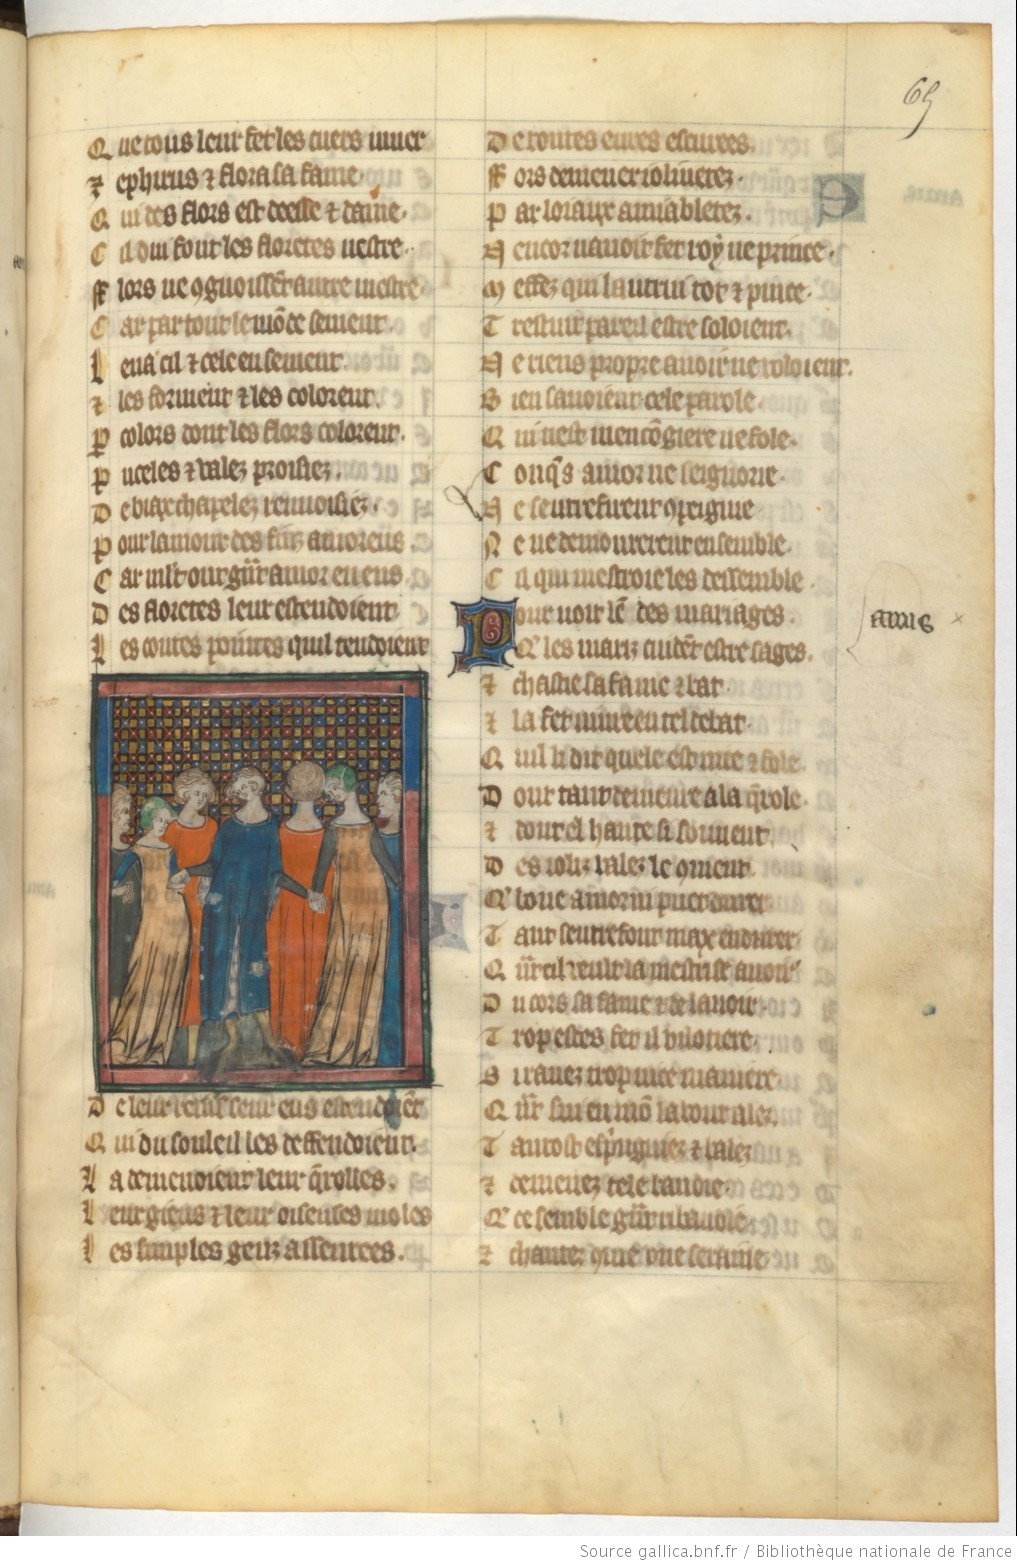 65
Q ue tous leur fet les cuers iuuer
Z ephirus ⁊ flora sa fame
Q ui des flors est deesse ⁊ dame.
C il dui font les floretes nestre.
F lors ne 9gnoissēt autre mestre
C ar par tout le mōde semeur.
L en a cil ⁊ cele ensement
⁊ les forment ⁊ les coloreur.
P colors dont les flors coloreur.
P uceles ⁊ valez proisiez.
D e biax chapelez renuoisiez.
P our lamour des fins amoreus
C ar mlt ont grāt amor en eus
D es floretes leur estendoient
L es coutes pointes quil tendoient
D e leur
Q ui du souleil les deffendoient.
L a demenoient leur q̄rolles.
L eur gieus ⁊ leur oiseuses moles
L es simples genz asseurees.
D e toutes cures escurees.
F ors de mener ioliuetez.
P ar loiaux amiabletez.
N encor nauoit fet roy ne prince.
M effez qui lautrui tot ⁊ pince.
T restuit pareil estre soloient.
N e riens propre auoir ne voloient.
B ien sauoient cele parole
Q ui nest mencōgiere ne fole.
C onq̄s amor ne seignorie
N e sentrefirent 9pagnie
N e ne demourerent ensemble.
C il qui mestroie les dessemble
Pour uoir lē des mariages.
Q̄ les mariz cuidēt estre sages.
⁊ chastie sa fame ⁊ bat
⁊ la fet uiure en tel debat
Q uil li dit quele est nice ⁊ fole
D ont tant demeure a la q̄role.
⁊ dont el hante si souuent
D es ioliz valez le 9uent
Q̄ bone amor ni puet durer
T ant sentrefont max endurer
Q ūt cil veult la mestrise auoir
D u cors sa fame ⁊ de lauoir.
T rop estes fet il vilotiere.
S i rauez trop nice maniere.
Q ūt sui en mō labour alez.
T antost espinguiez ⁊ balez
⁊ demenez tele
Q̄ ce semble grāt ribaudie
⁊ chantez 9me une seraine
amis
Source gallica.bnf.fr / Bibliothèque nationale de France